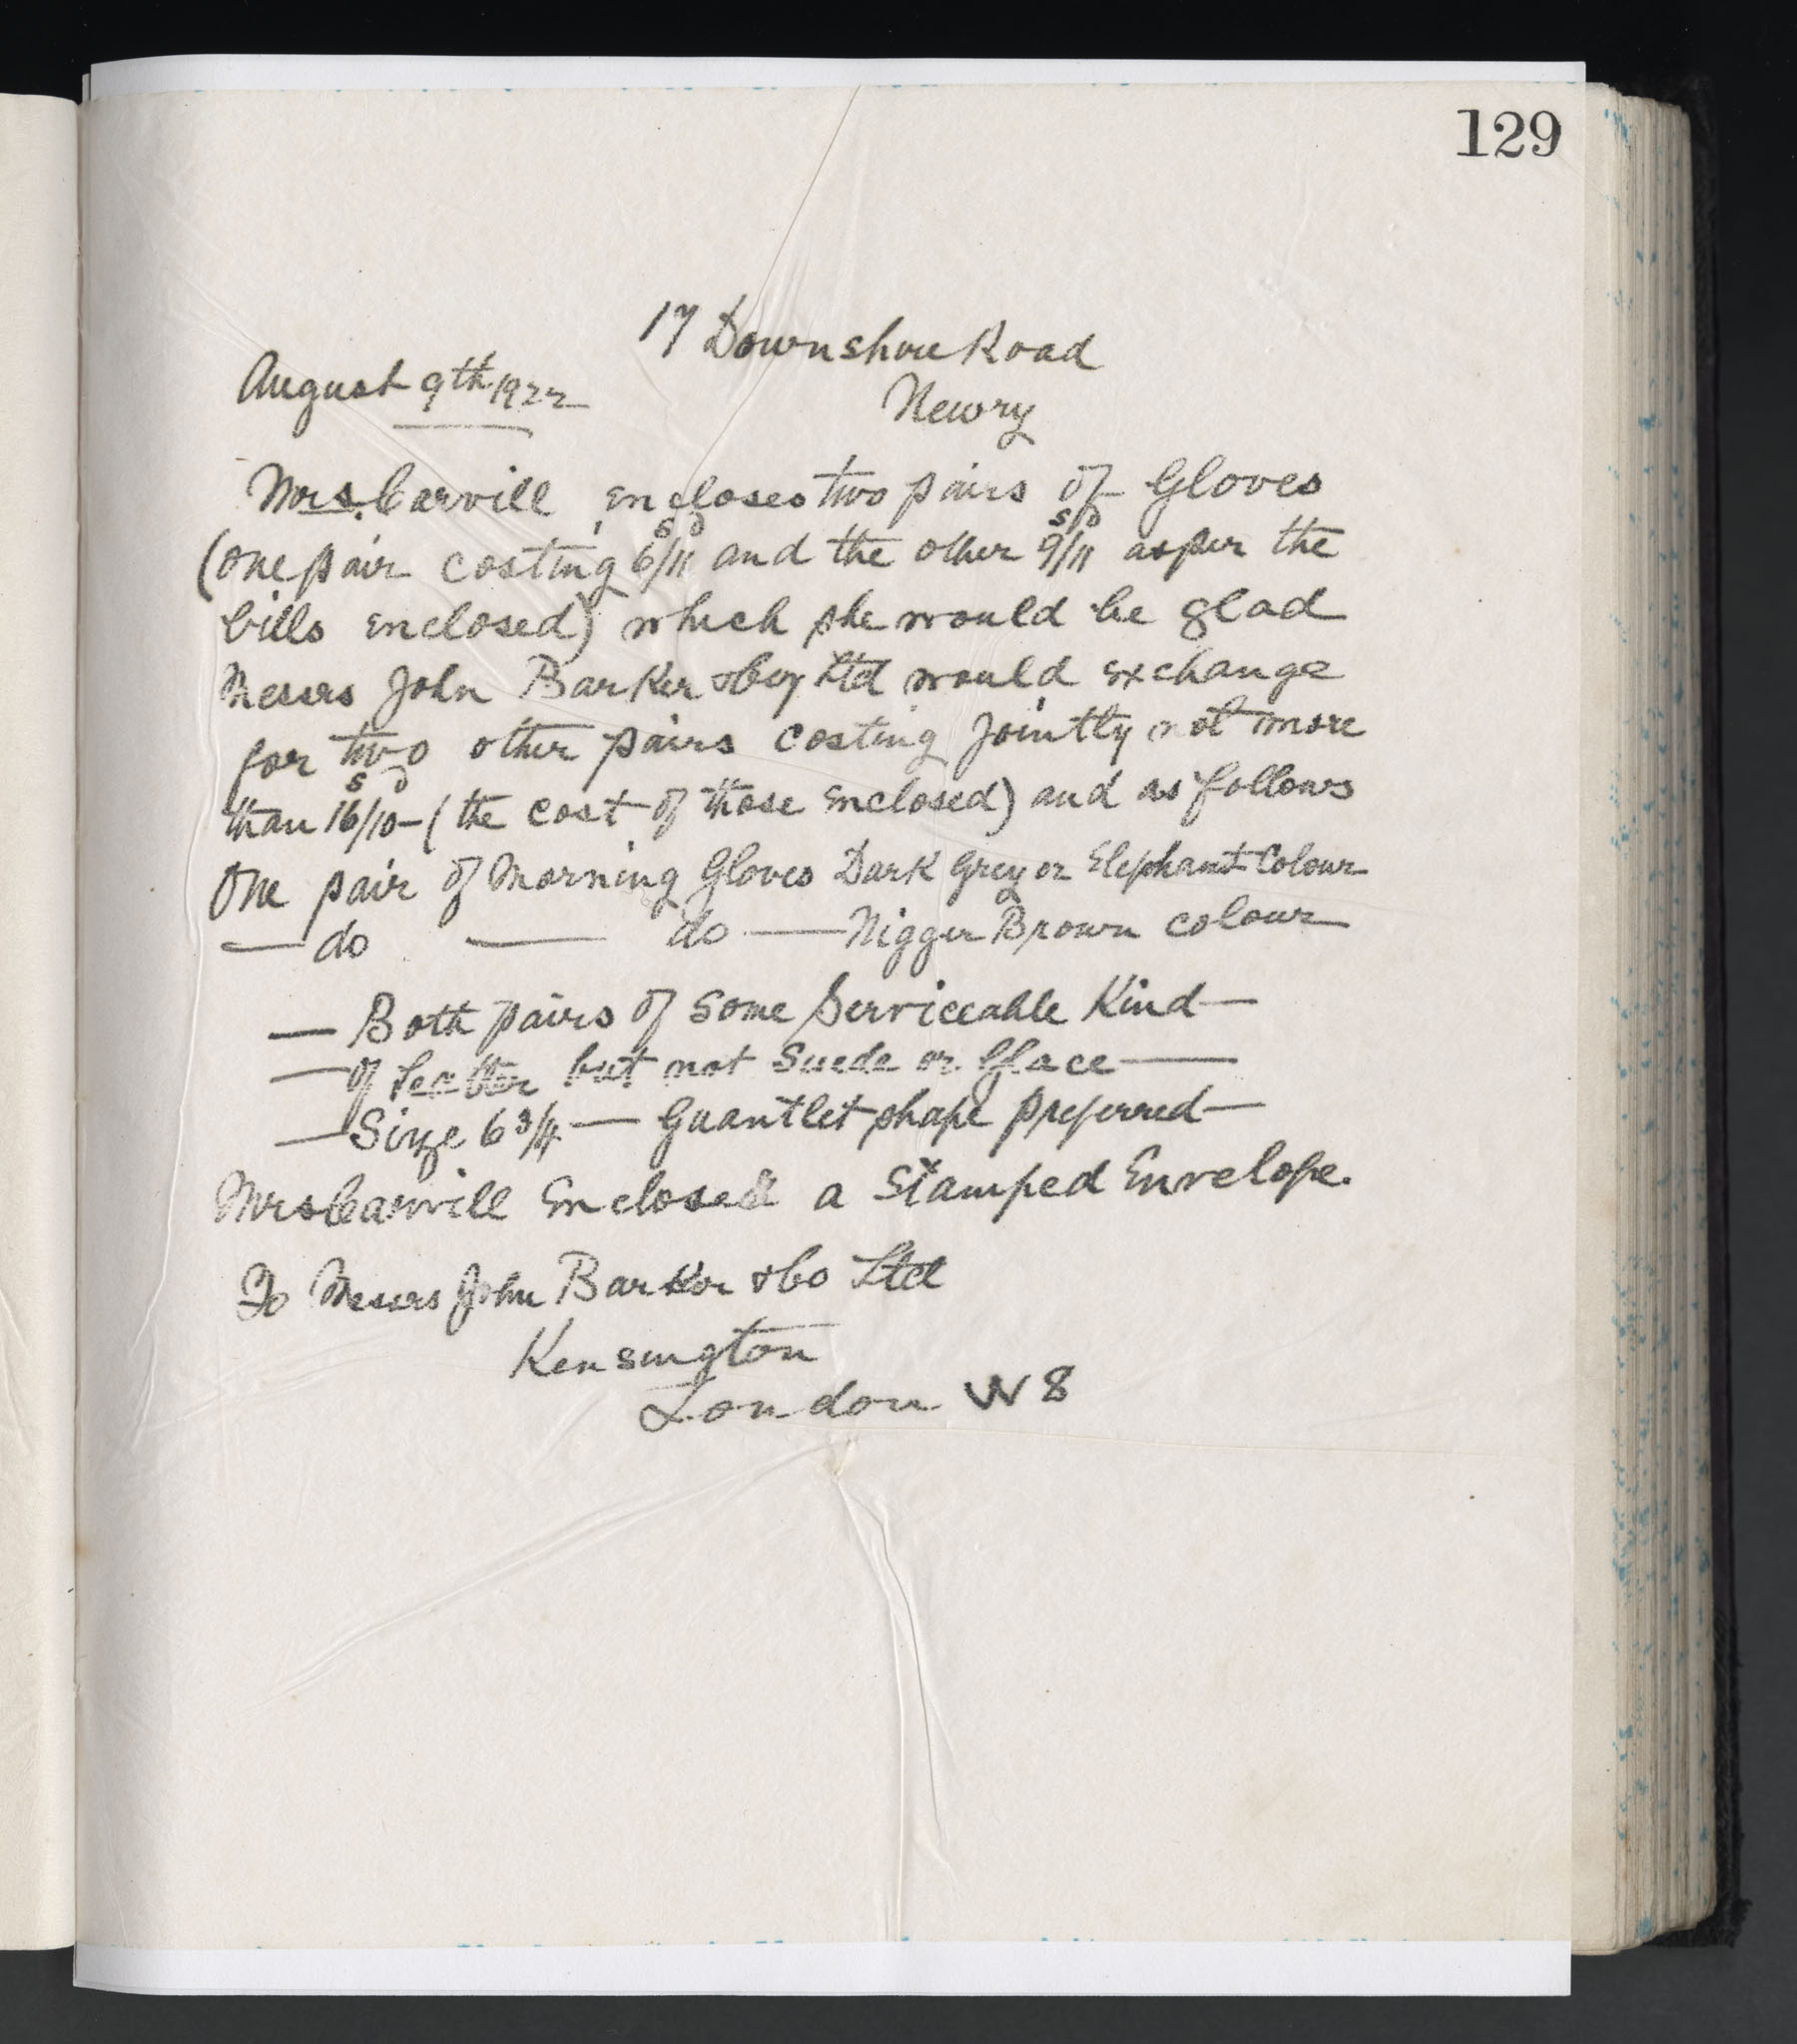 129
17 Downshire Road
August 9th 1922
Newry
Mrs. Carvill encloses two pairs of Gloves
(one pair costing 6s/11d and the other 9s/11d as per the
bills enclosed) which she would be glad
Messrs John Barker & Coy Ltd would exchange
for two other pairs costing jointly not more
than 16s/10d - (the cost of those enclosed) and as follows
One pair of Morning Gloves Dark Grey or Elephant Colour
— do — do — Nigger Brown colour
— Both pairs of some Serviceable Kind —
— of Leather but not Suede or Glace —
— Size 6 3/4 — Guantlet shape preferred —
Mrs Carvill Encloses a Stamped Envelope.
To Messrs John Barker & Co Ltd
Kensington
London W 8